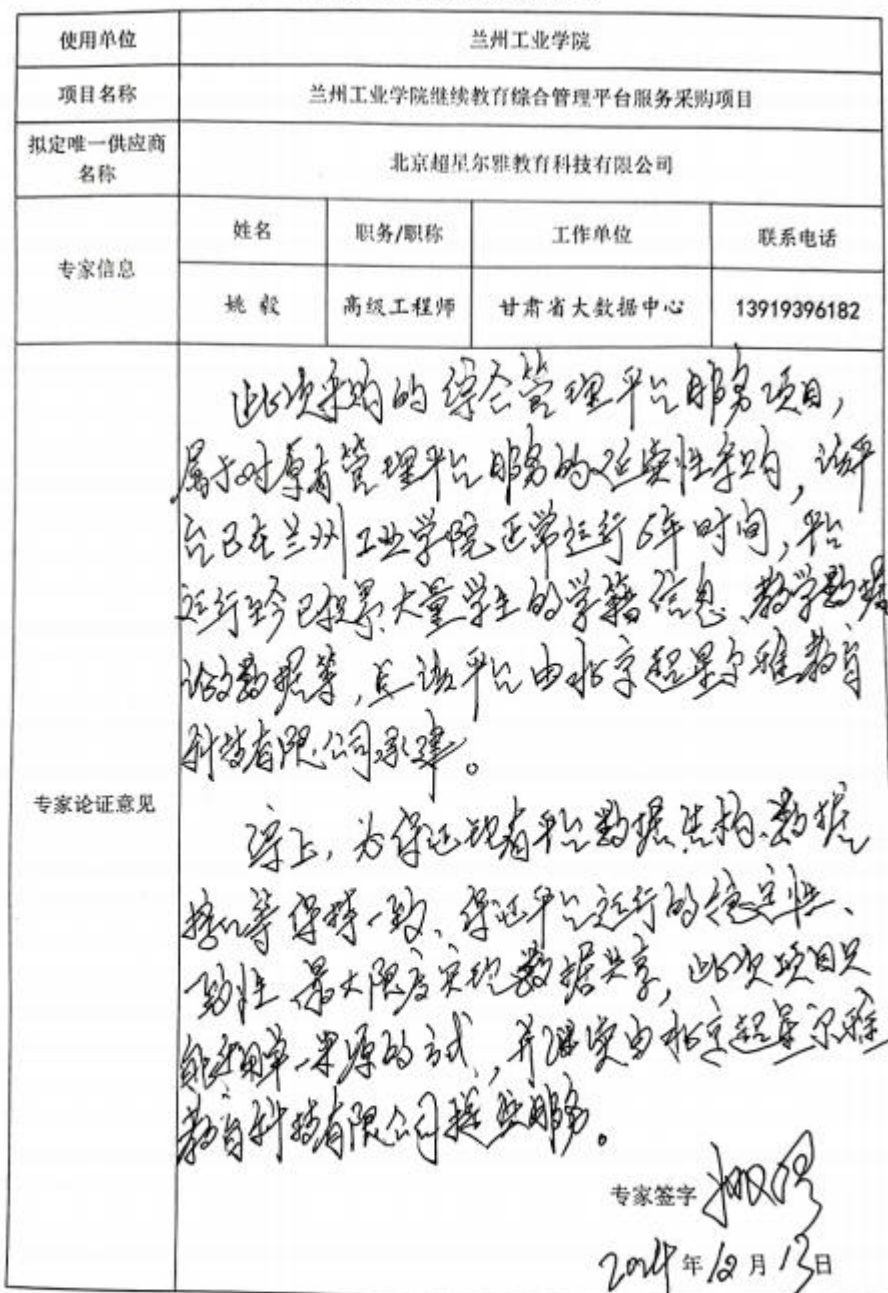 使用单位 兰州工业学院
项目名称 兰州工业学院继续教育综合管理平台服务采购项目
拟定唯一供应商
名称
北京超星尔雅教育科技有限公司
专家信息
姓名 职务/职称 工作单位 联系电话
姚毅 高级工程师 甘肃省大数据中心 13919396182
专家论证意见
此次采购的综合管理平台服务项目,
属于对原有管理平台服务的延续性采购,该平
台已在兰州工业学院正常运行6年时间,平台
运行至今已积累大量学生的学籍信息、教学数据
论文数据等,且该平台由北京超星尔雅教育
科技有限公司承建。
综上,为保证现有平台数据结构、数据
接口等保持一致、保证平台运行的稳定性、
一致性 最大限度实现数据共享,此次项目只
能采用单一来源的方式,并继续由北京超星尔雅
教育科技有限公司提供服务。
专家签字 姚毅
2024年12月13日